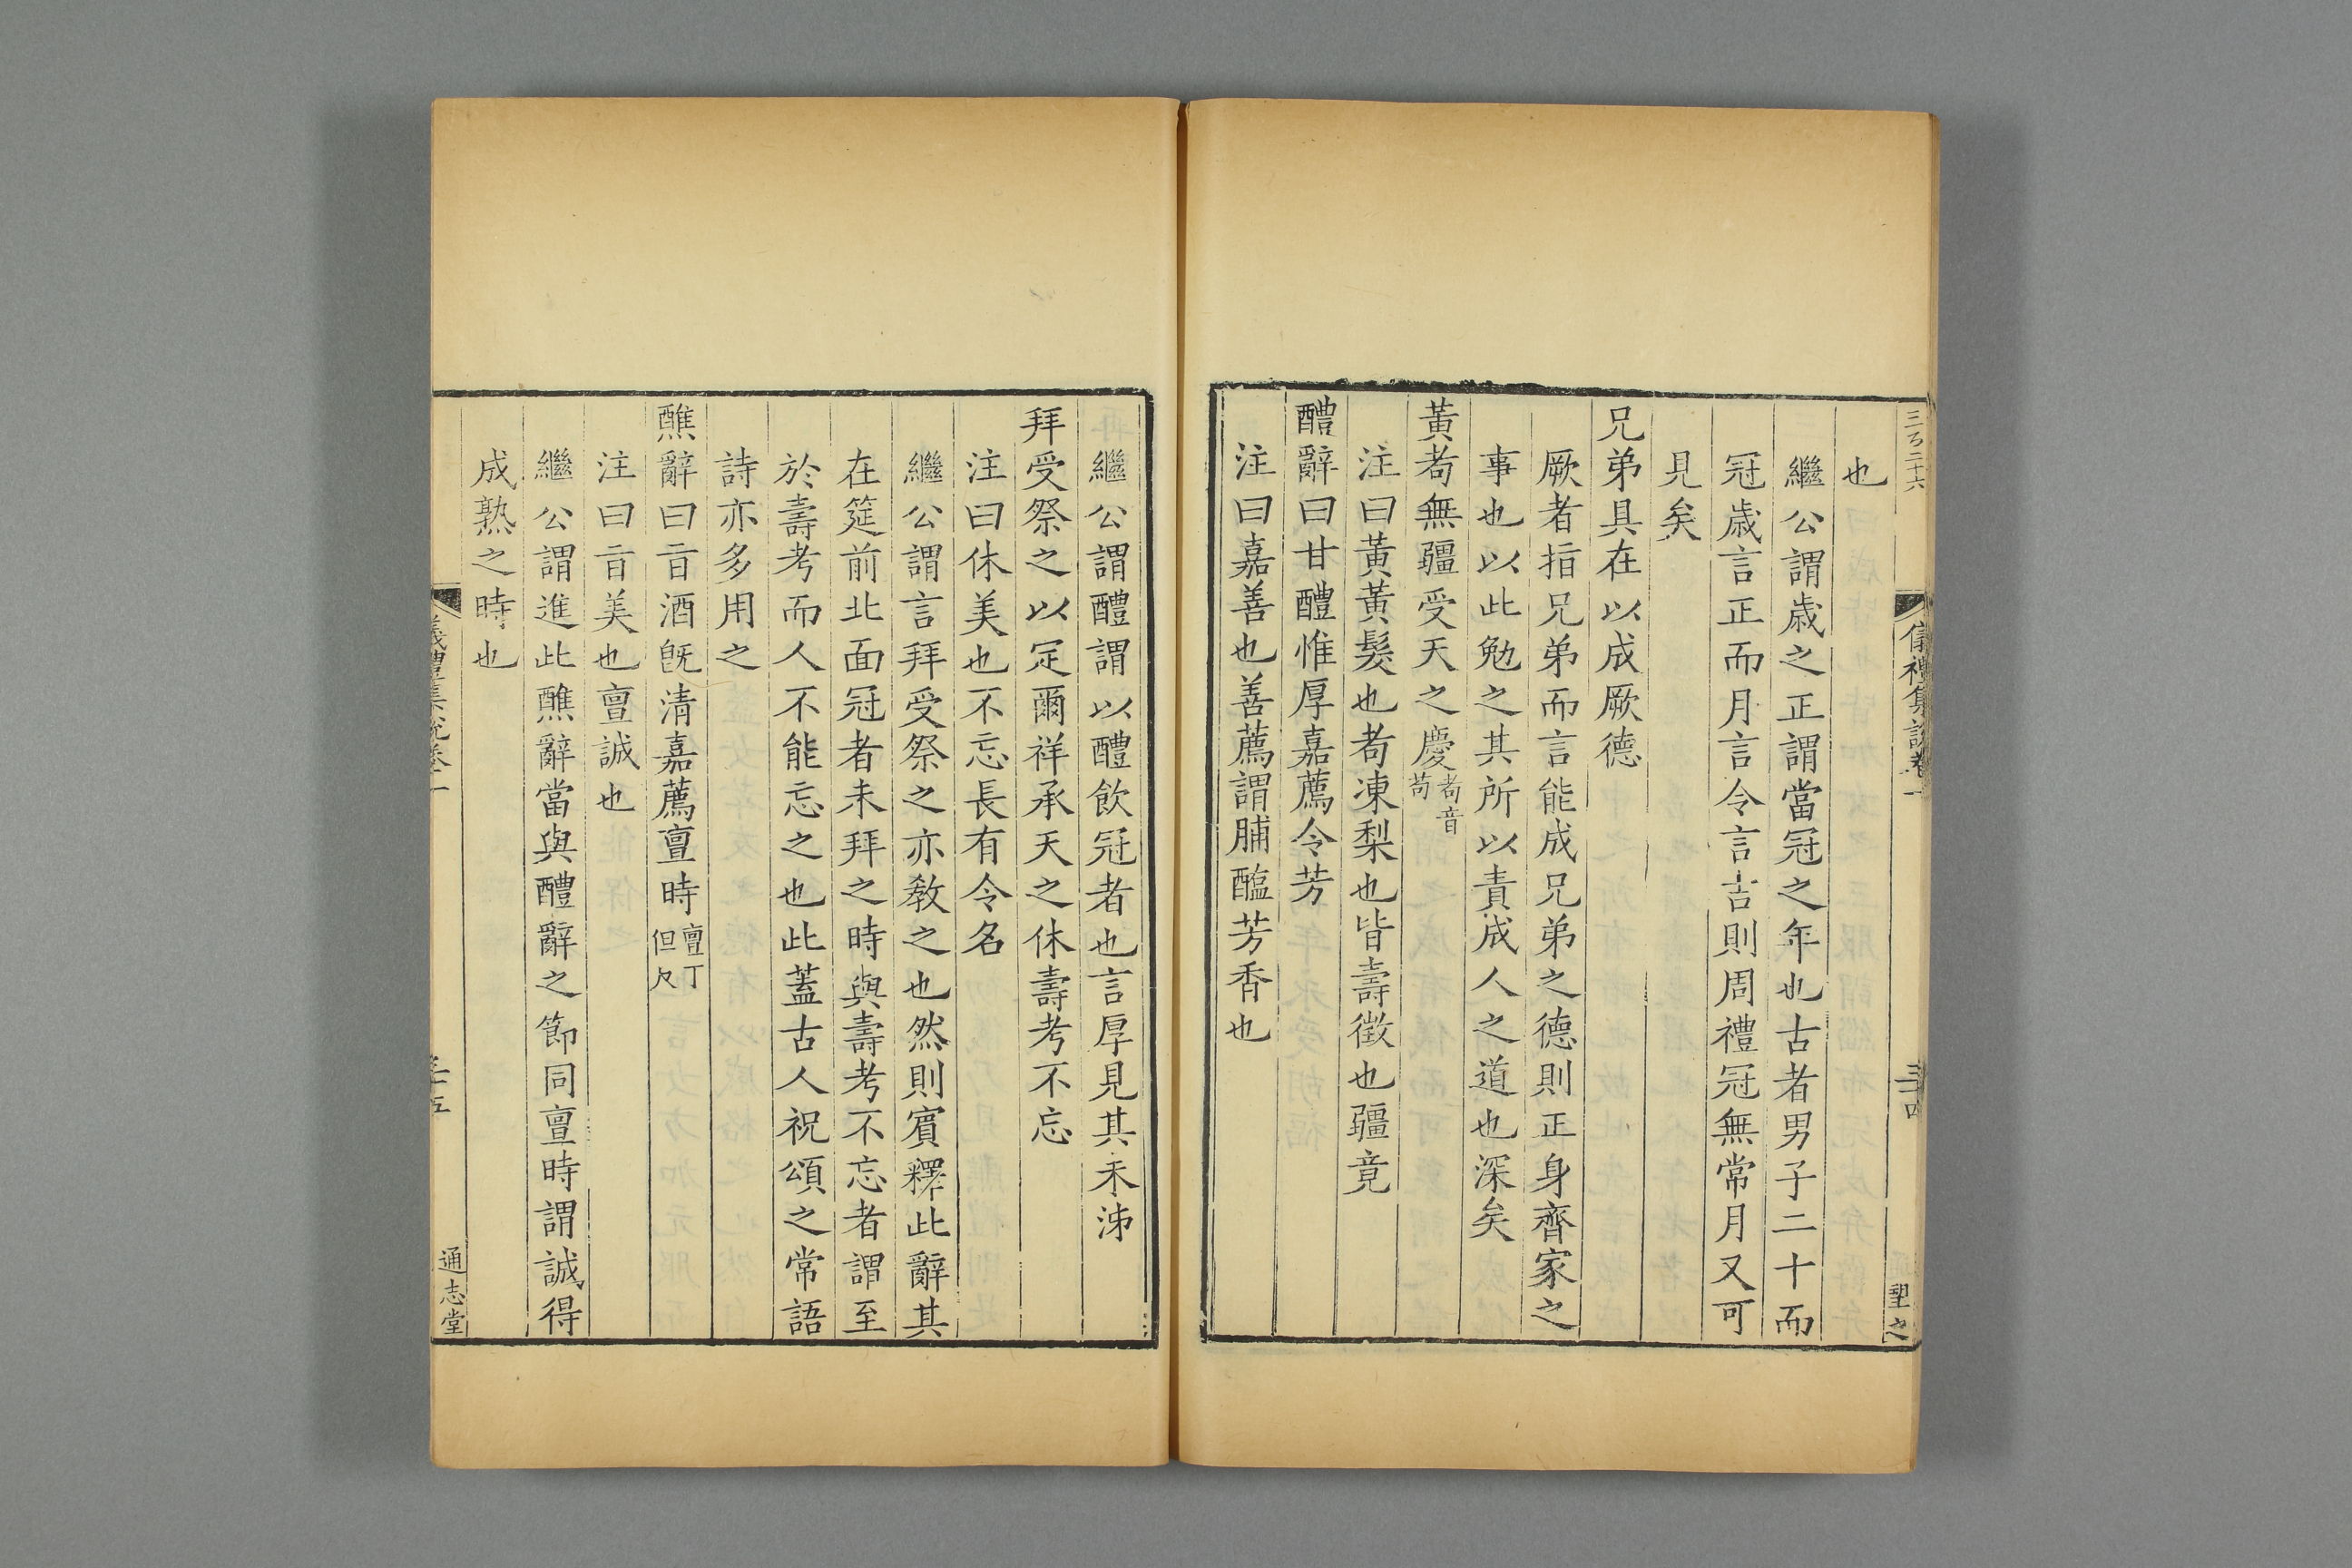 三百二十六
儀禮集說卷一
三十四
望之
也
繼公謂歳之正謂當冠之年也古者男子二十而
冠歳言正而月言令言吉則周禮冠無常月又可
見矣
兄弟具在以成厥德
厥者指兄弟而言能成兄弟之德則正身齊家之
事也以此勉之其所以責成人之道也深矣
黃耇無疆受天之慶耇音
苟
注曰黃黃髮也耇凍梨也皆壽徵也疆竟
醴辭曰甘醴惟厚嘉薦令芳
注曰嘉善也善薦謂脯醢芳香也
繼公謂醴謂以醴飲冠者也言厚見其未泲
拜受祭之以定爾祥承天之休壽考不忘
注曰休美也不忘長有令名
繼公謂言拜受祭之亦敎之也然則賓釋此辭其
在筵前北面冠者未拜之時與壽考不忘者謂至
於壽考而人不能忘之也此蓋古人祝頌之常語
詩亦多用之
醮辭曰旨酒旣清嘉薦亶時亶丁
但反
注曰旨美也亶誠也
繼公謂進此醮辭當與醴辭之節同亶時謂誠得
成熟之時也
儀禮集說卷一
三十五
通志堂